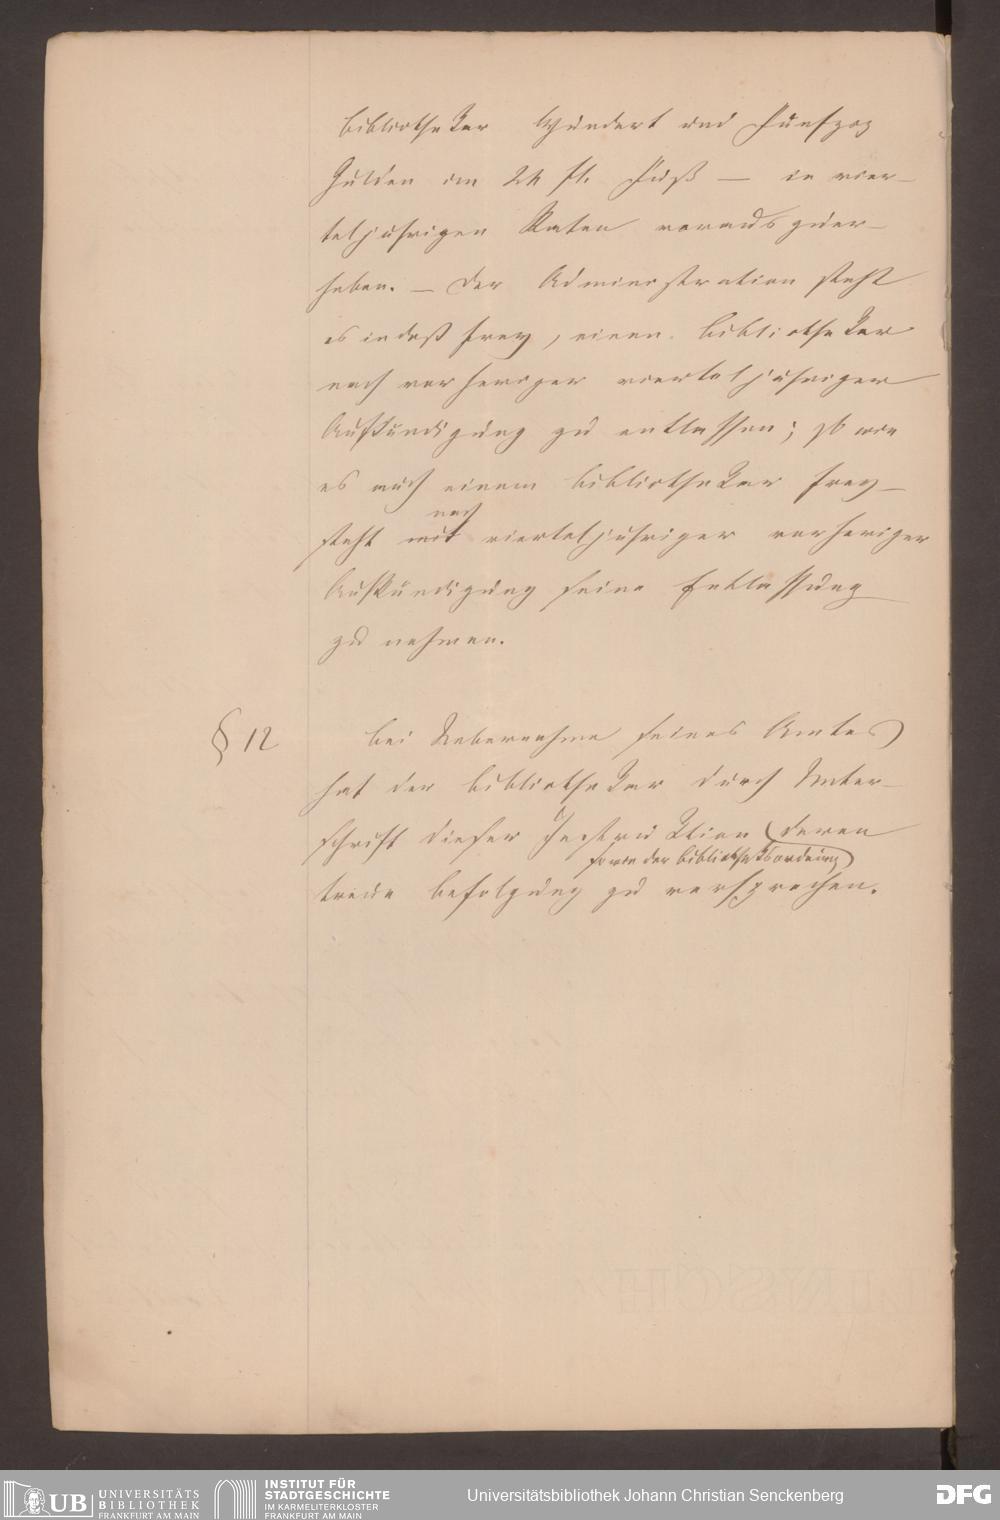 Bibliothekar Hundert und Fünfzog
Gulden im 24 fl. Fuß — in vier-
teljährigen Raten voraus zu er-
heben. — Der Administration steht
es indeß frey, einen Bibliothekar
nach vorheriger vierteljähriger
Aufkündigung zu entlassen; so wie
es auch einem Bibliothekar frey-
nach
steht mit vierteljähriger vorheriger
Aufkündigung seine Entlassung
zu nehmen.
§ 12 Bei Uebernahme seines Amtes
hat der Bibliothekar durch Unter-
schrift dieser Instruktion (deren
sowie der Bibliotheksordnung)
treue Befolgung zu versprechen.
UB UNIVERSITÄTS
BIBLIOTHEK
FRANKFURT AM MAIN
INSTITUT FÜR
STADTGESCHICHTE
IM KARMELITERKLOSTER
FRANKFURT AM MAIN
Universitätsbibliothek Johann Christian Senckenberg
DFG